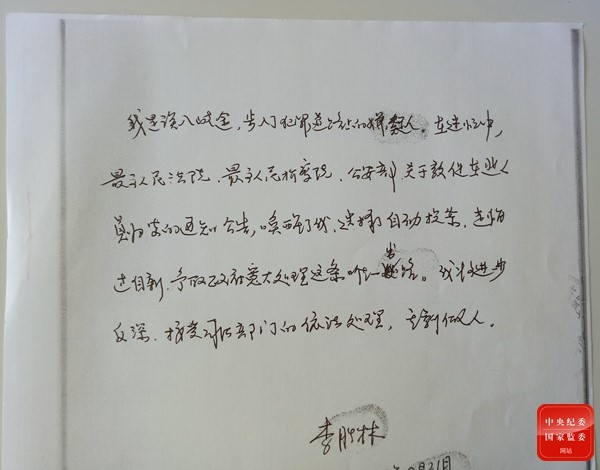 我是误入歧途，步入犯罪道路的嫌疑人。在逃忙中，
最高人民法院、最高人民检察院、公安部关于敦促在逃人
员归案的通知公告，唤醒了我，选择了自动投案，走悔
过自新，争取政府宽大处理这条唯一出路。我将进步
反深，接受司法部门的依法处理，重新做人。
李胜林
月31日
中央纪委
国家监委
网站